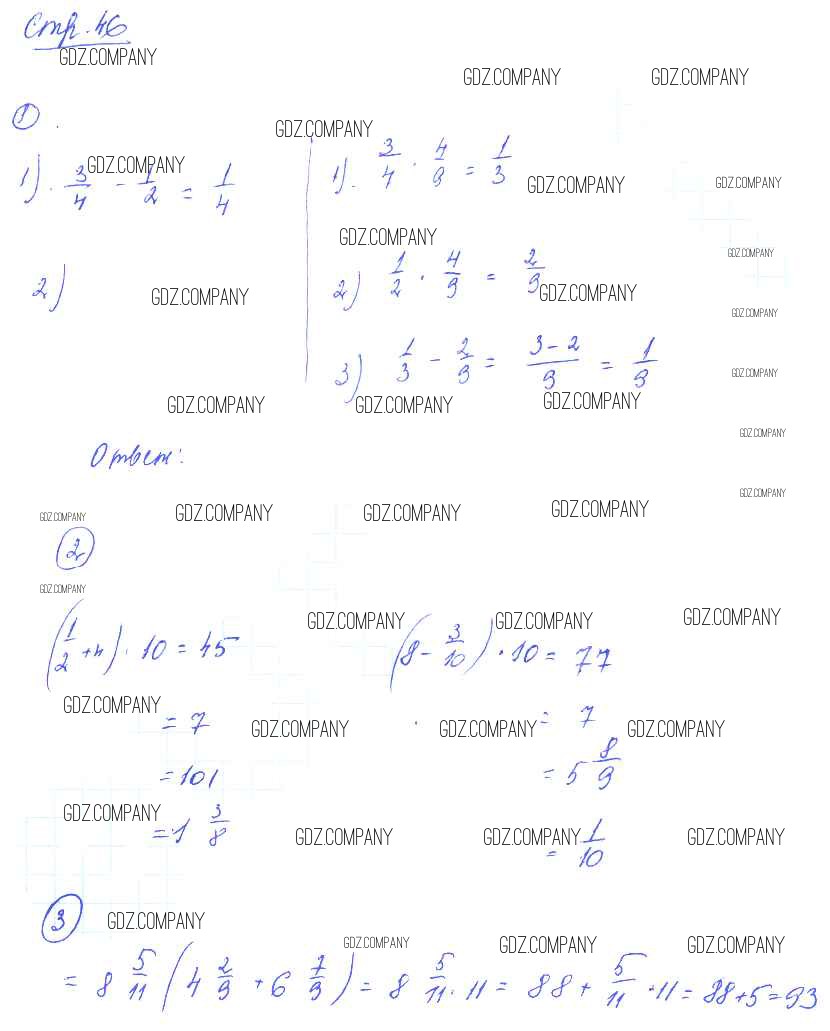 Стр. 46
GDZ.COMPANY
GDZ.COMPANY GDZ.COMPANY
① .
GDZ.COMPANY
GDZ.COMPANY
1) . 3/4 - 1/2 = 1/4
1). 3/4 · 4/9 = 1/3
GDZ.COMPANY GDZ.COMPANY
GDZ.COMPANY
GDZ.COMPANY
2)
GDZ.COMPANY
2) 1/2 · 4/9 = 2/9
GDZ.COMPANY
GDZ.COMPANY
3) 1/3 - 2/9 = (3-2)/9 = 1/9
GDZ.COMPANY
GDZ.COMPANY GDZ.COMPANY GDZ.COMPANY
GDZ.COMPANY
Ответ:
GDZ.COMPANY
GDZ.COMPANY GDZ.COMPANY GDZ.COMPANY GDZ.COMPANY
②
GDZ.COMPANY
GDZ.COMPANY GDZ.COMPANY GDZ.COMPANY
(1/2 + 4) · 10 = 45
(8 - 3/10) · 10 = 77
GDZ.COMPANY
= 7
= 7
GDZ.COMPANY GDZ.COMPANY GDZ.COMPANY
= 101
= 5 8/9
GDZ.COMPANY
= 1 3/8
= 1/10
GDZ.COMPANY GDZ.COMPANY GDZ.COMPANY
③
GDZ.COMPANY
GDZ.COMPANY GDZ.COMPANY GDZ.COMPANY
= 8 5/11 (4 2/9 + 6 7/9) = 8 5/11 · 11 = 88 + 5/11 · 11 = 88+5=93